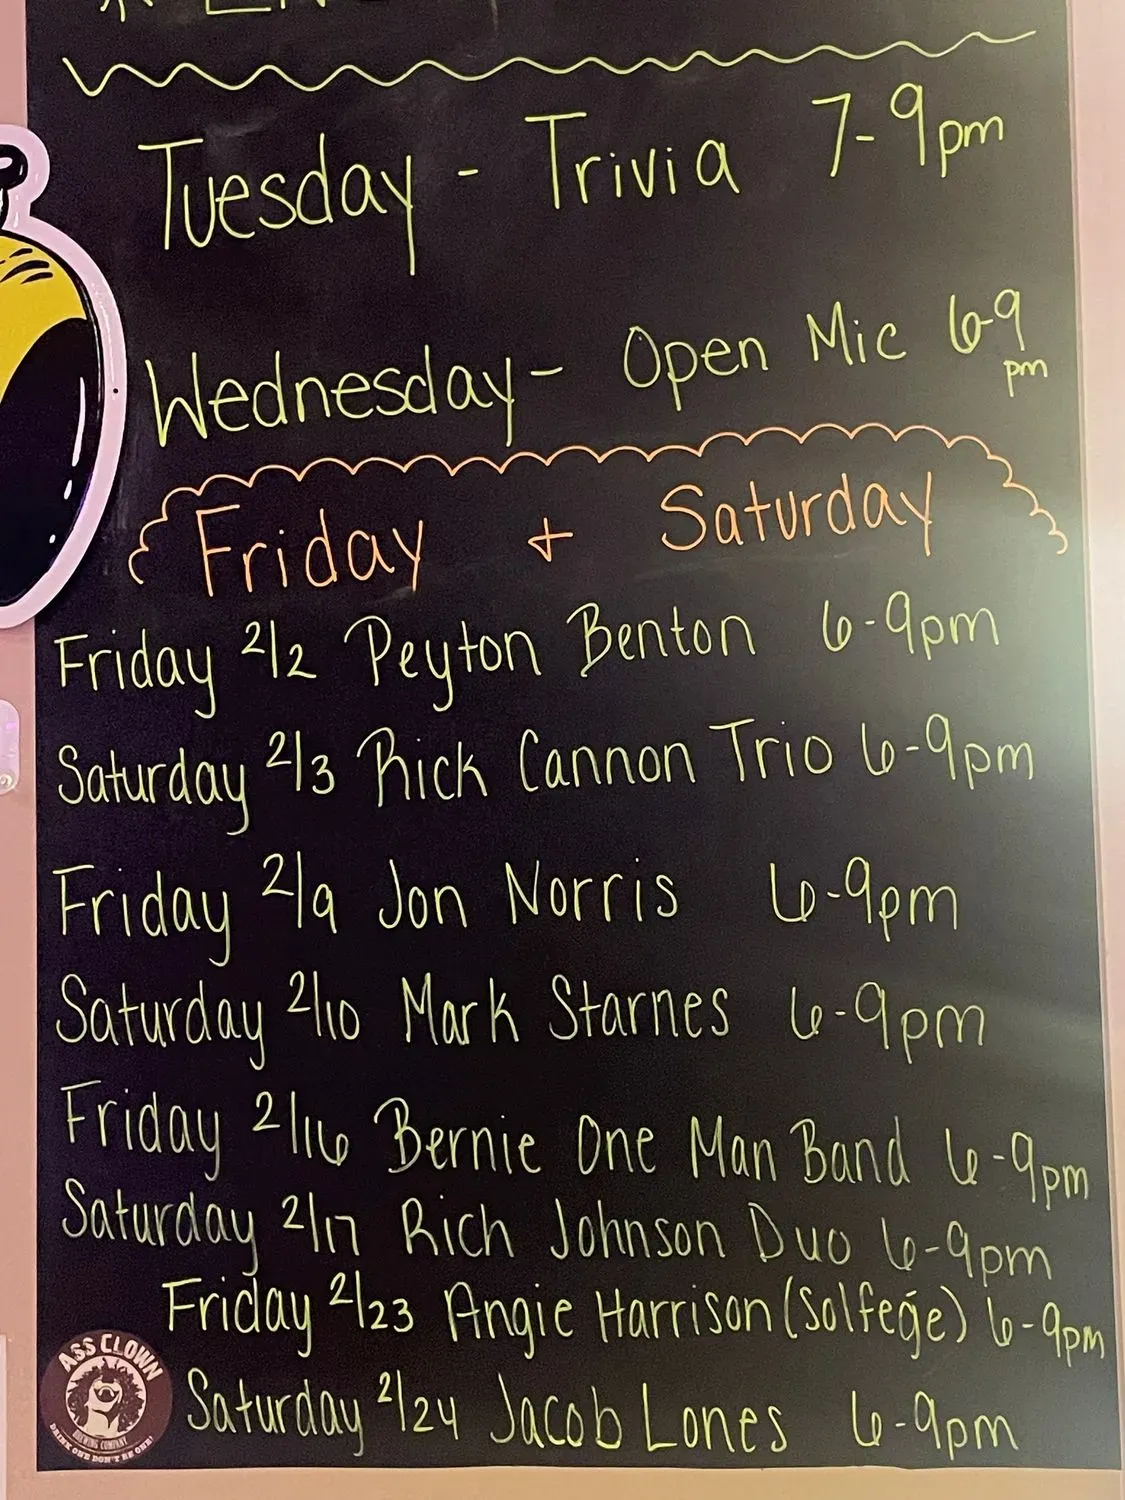 Tuesday - Trivia 7-9pm
Wednesday - Open Mic 6-9
pm
Friday + Saturday
Friday 2/2 Peyton Benton 6-9pm
Saturday 2/3 Rick Cannon Trio 6-9pm
Friday 2/9 Jon Norris 6-9pm
Saturday 2/10 Mark Starnes 6-9pm
Friday 2/16 Bernie One Man Band 6-9pm
Saturday 2/17 Rich Johnson Duo 6-9pm
Friday 2/23 Angie Harrison (Solfeģe) 6-9pm
Saturday 2/24 Jacob Lones 6-9pm
ASS CLOWN
BREWING COMPANY
DRINK ONE DON'T BE ONE!